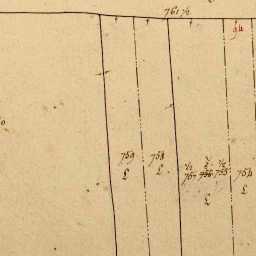 761 ½
94
759 758
½ ½ ½
757 756 755 754
£ £ £ £